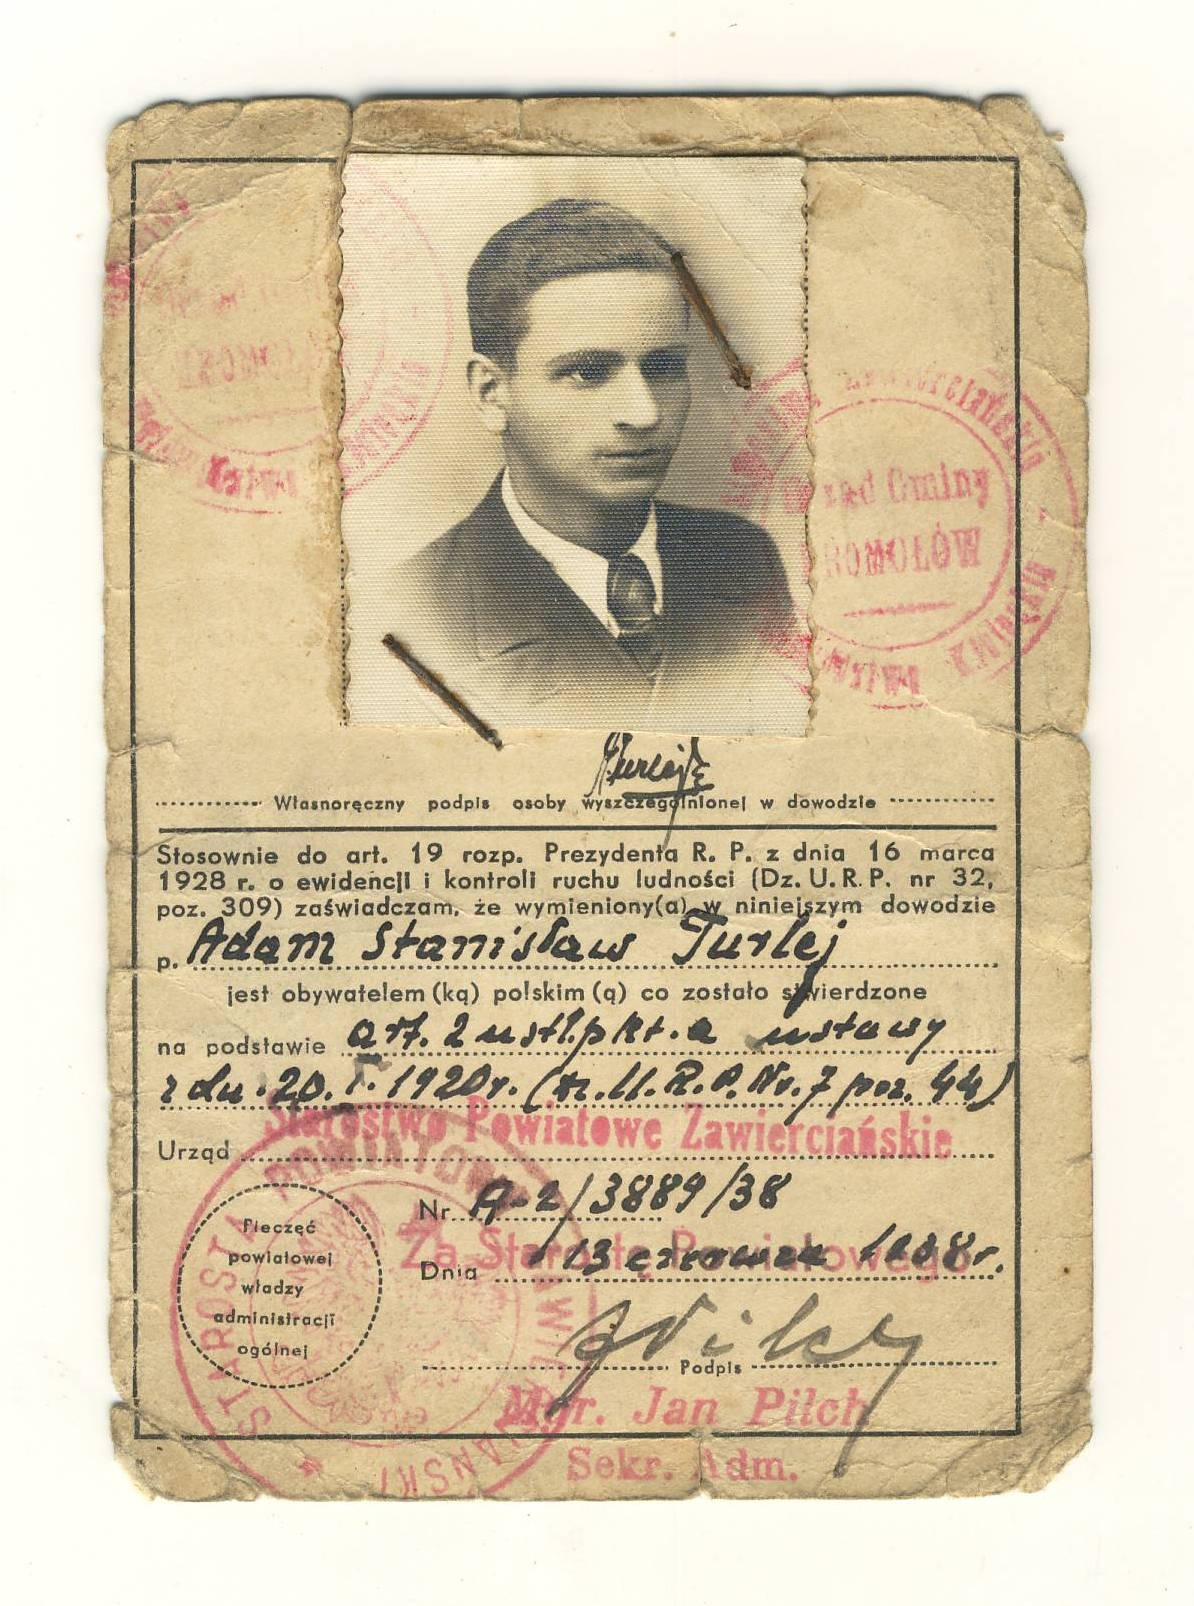 Zawierciańskie
Urząd Gminy
KROMOŁÓW
Własnoręczny podpis osoby wyszczególnionej w dowodzie
Stosownie do art. 19 rozp. Prezydenta R. P. z dnia 16 marca
1928 r. o ewidencji i kontroli ruchu ludności (Dz. U. R. P. nr 32,
poz. 309) zaświadczam, że wymieniony(a) w niniejszym dowodzie
p. Adam Stanisław Turlej
jest obywatelem (ką) polskim (ą) co zostało stwierdzone
na podstawie art. 2 ust1.pkt.a ustawy
z dn. 20.I.1920r. (Dz.U.R.P.Nr.7 poz. 44)
Starostwo Powiatowe Zawierciańskie
Urząd
Nr. A-2/3889/38
Za Starostę Powiatowego
Dnia 13 czerwca 1938r.
Pieczęć
powiatowej
władzy
administracji
ogólnej
STAROSTA POWIATOWY
Podpis
Mgr. Jan Pilch
Sekr. Adm.